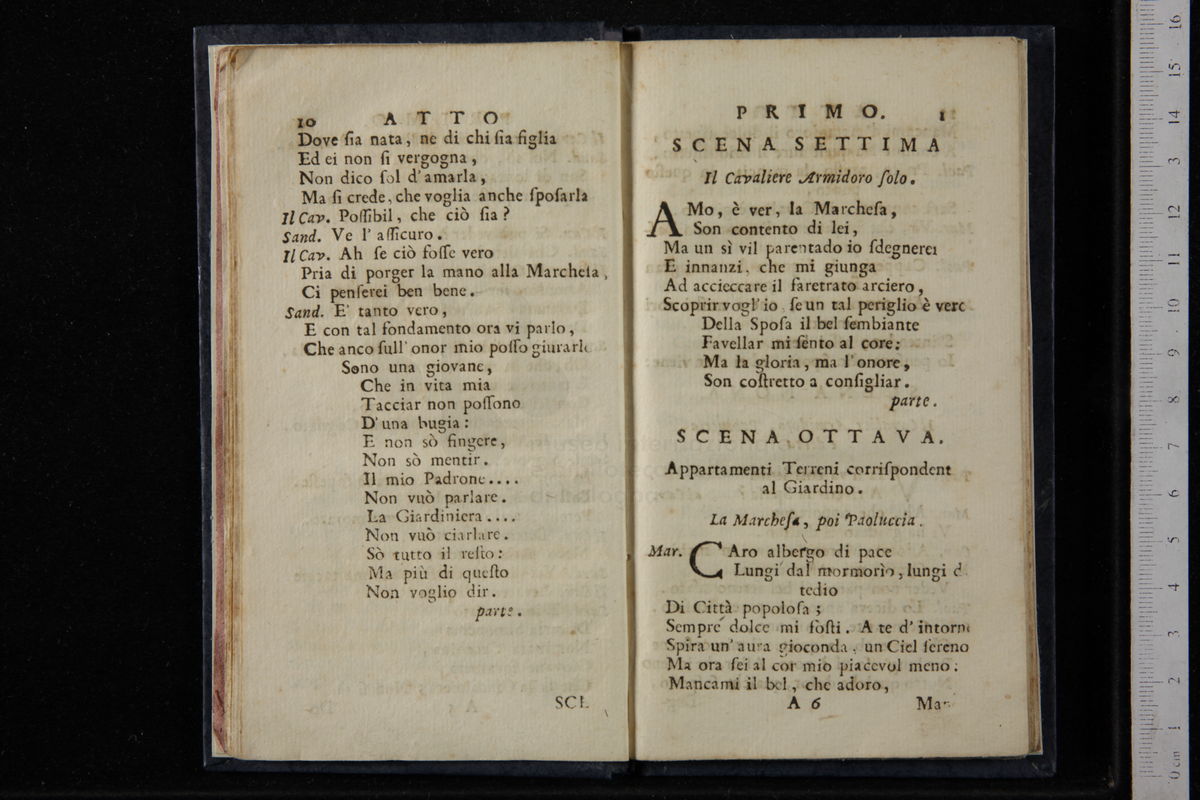 10 ATTO
Dove ſia nata, ne di chi ſia figlia
Ed ei non ſi vergogna,
Non dico ſol d'amarla,
Ma ſi crede, che voglia anche ſpoſarla
Il Cav. Poſſibil, che ciò ſia?
Sand. Ve l'aſſicuro.
Il Cav. Ah ſe ciò foſſe vero
Pria di porger la mano alla Marcheſa,
Ci penſerei ben bene.
Sand. E' tanto vero,
E con tal fondamento ora vi parlo,
Che anco ſull' onor mio poſſo giurarlo
Sono una giovane,
Che in vita mia
Tacciar non poſſono
D'una bugia:
E non sò fingere,
Non sò mentir.
Il mio Padrone....
Non vuò parlare.
La Giardiniera....
Non vuò ciarlare.
Sò tutto il reſto:
Ma più di queſto
Non voglio dir.
parte.
SCE
PRIMO. 1
SCENA SETTIMA
Il Cavaliere Armidoro ſolo.
AMo, è ver, la Marcheſa,
Son contento di lei,
Ma un sì vil parentado io ſdegnerei
E innanzi, che mi giunga
Ad accieccare il faretrato arciero,
Scoprir vogl'io, ſe un tal periglio è vero
Della Spoſa il bel ſembiante
Favellar mi ſento al core:
Ma la gloria, ma l'onore,
Son coſtretto a conſigliar.
parte.
SCENA OTTAVA.
Appartamenti Terreni corriſpondent
al Giardino.
La Marcheſa, poi Paoluccia.
Mar. CAro albergo di pace
Lungi dal mormorìo, lungi d
tedio
Di Città popoloſa;
Sempre dolce mi foſti. A te d'intorno
Spira un' aura gioconda, un Ciel ſereno
Ma ora ſei al cor mio piacevol meno;
Mancami il bel, che adoro,
A 6 Man